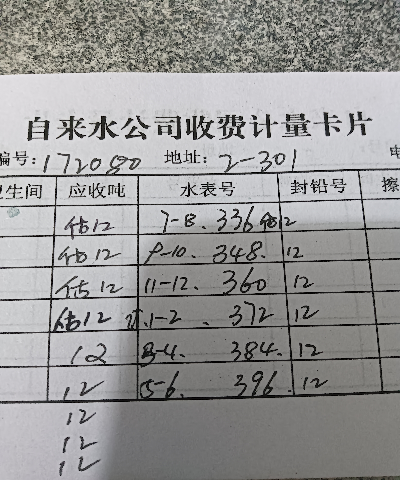 自来水公司收费计量卡片
编号:172080 地址:2-301 电
卫生间 应收吨 水表号 封铅号 擦
估12 7-8. 336 估12
估12 9-10. 348. 12
估12 11-12. 360 12
估12 1-2. 372 12
12 3-4. 384. 12
12 5-6. 396. 12
12
12
12